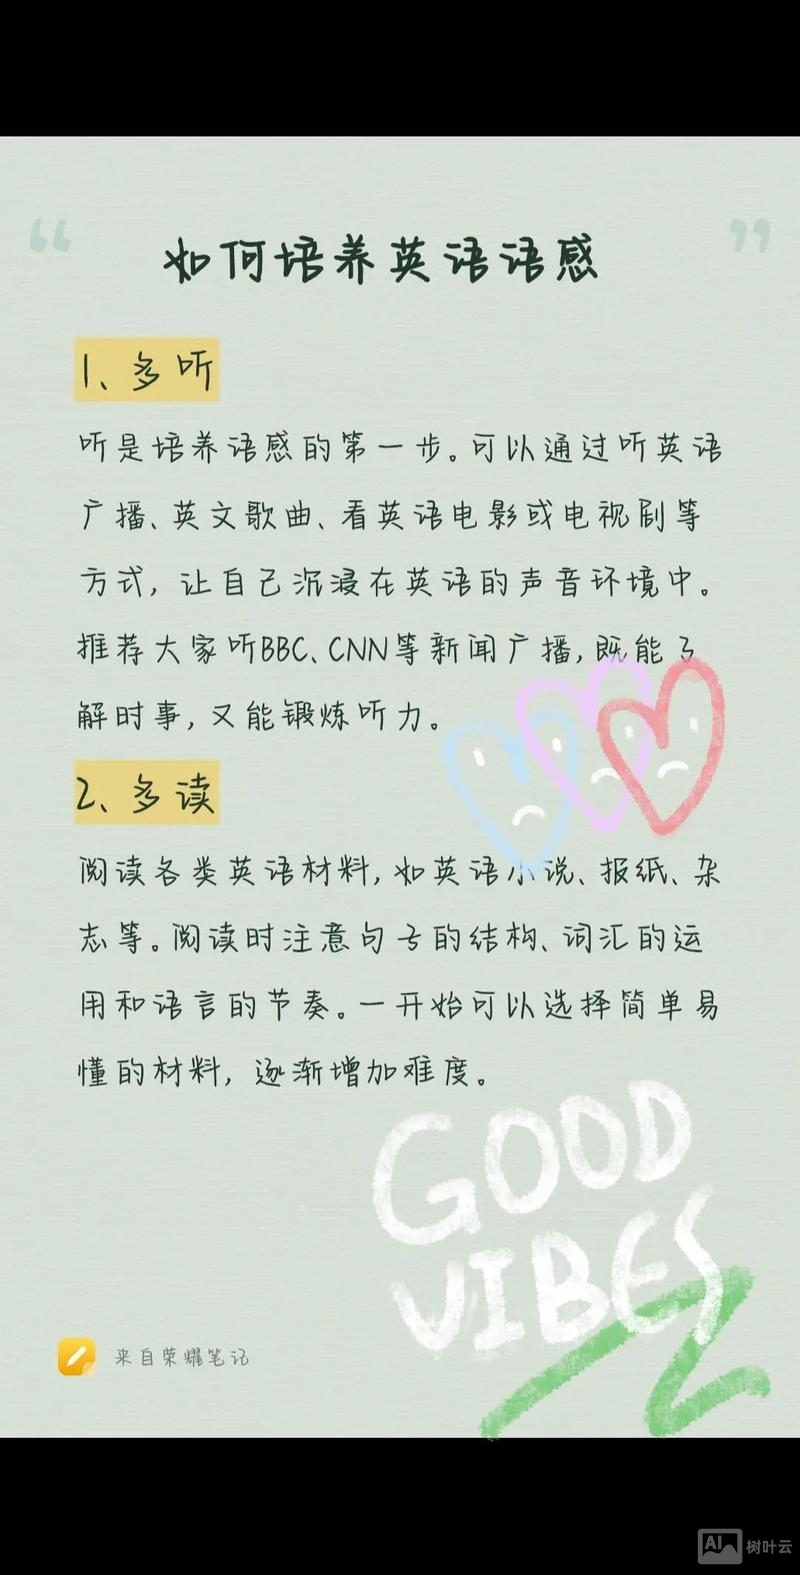 “ 如何培养英语语感 ”
1、多听
听是培养语感的第一步。可以通过听英语
广播、英文歌曲、看英语电影或电视剧等
方式，让自己沉浸在英语的声音环境中。
推荐大家听BBC、CNN等新闻广播，既能了
解时事，又能锻炼听力。
2、多读
阅读各类英语材料，如英语小说、报纸、杂
志等。阅读时注意句子的结构、词汇的运
用和语言的节奏。一开始可以选择简单易
懂的材料，逐渐增加难度。
GOOD
VIBES
来自荣耀笔记
AI 树叶云